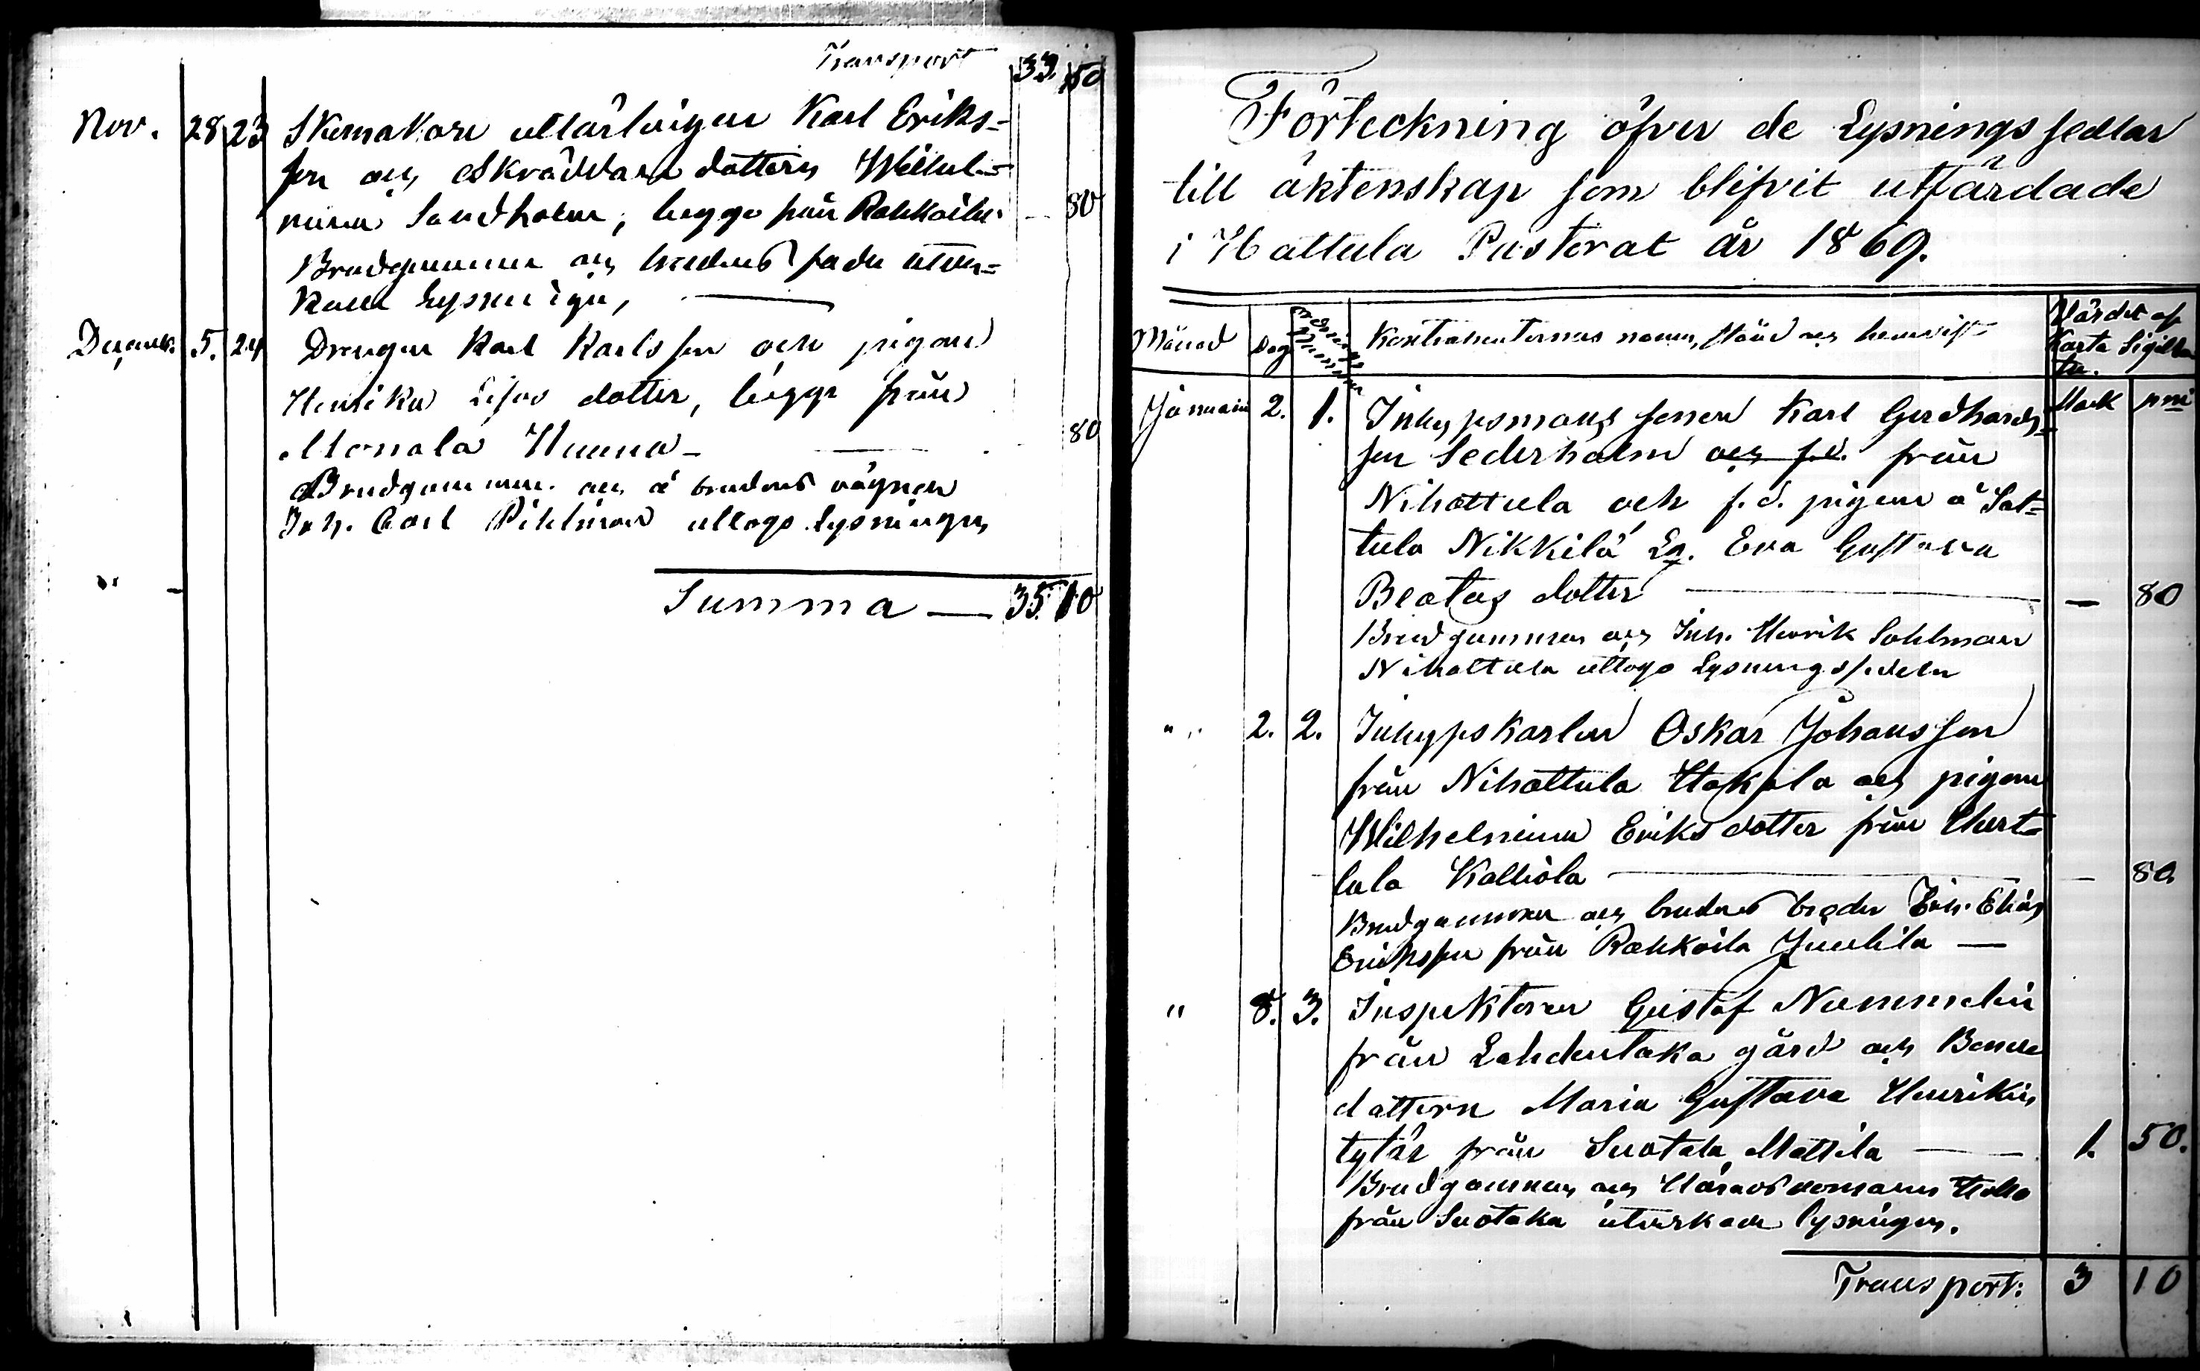 Transport 33 50
Nov. 28 23 Skomakare utlärlingen Karl Eriks-
son och Skräddare dottern Wilhel-
mina Sandholm, begge från Rahkoila. — 80
Brudgummen och brudens fader utver-
kade Lysningen, —
Decemb. 5. 24 Drengen Karl Karlsson och pigan
Henrika Lisas dotter, begge från
Monala Uunna — 80
Brudgummen och å brudens vägnar
Inh. Carl Pihlman uttogo lysningen
Summa — 35. 10
Förteckning öfver de Lysningssedlar
till äktenskap som blifvit utfärdade
i Hattula Pastorat år 1869.
Månad Dag Kontrahenternas namn, stånd och hemvist Värdet af
Karta Sigillata.
Mark pni
Januari 2. 1. Inhysesmans sonen Karl Gerdhards-
son Sederholm och f.d. från
Nihattula och f.d. pigan å Sat-
tula Nikkilä Eg. Eva Gustava
Beatas dotter — — 80
Brudgummen och Inh. Henrik Sohlman
Nihattula uttogo Lysningssedeln
" 2. 2. Inhyseskarlen Oskar Johansson
från Nihattula Hakala och pigan
Wilhelmina Eriksdotter från Hurt-
tala Kalliola — — 80.
Brudgummen och brudens broder Inh. Elias
Eriksson från Rahkoila Juulila —
" 8. 3. Inspektoren Gustaf Nummelin
från Lahdentaka gård och Bonde
dottern Maria Gustava Henrikin
tytär från Suotala Mattila — 1. 50.
Brudgummen och Häradsdomaren Hollo
från Suotaka utverkade lysningen.
Transport: 3 10